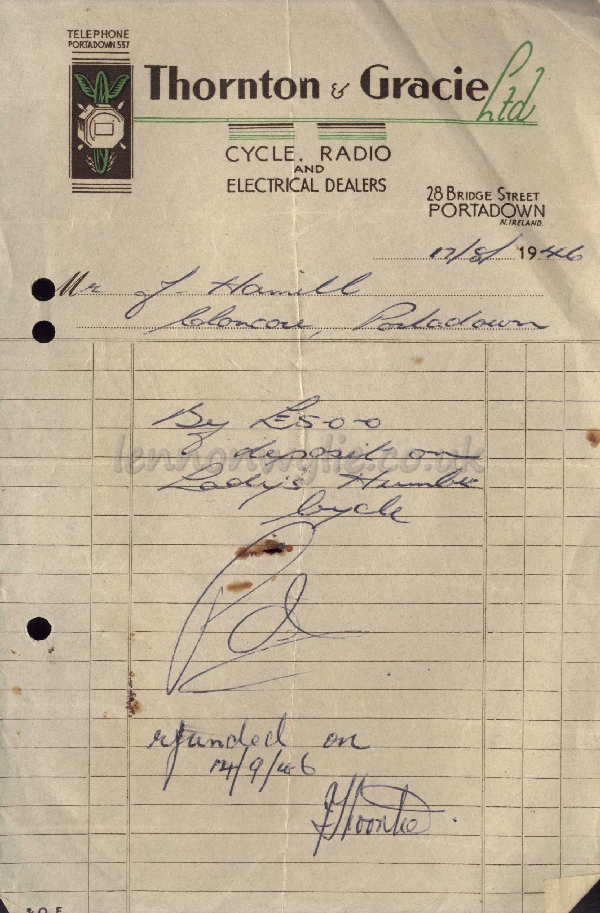 TELEPHONE
PORTADOWN 557
Thornton & Gracie Ltd
CYCLE, RADIO
AND
ELECTRICAL DEALERS
28 BRIDGE STREET
PORTADOWN
N. IRELAND.
17/8/ 1946
Mr J. Hamill
Cloncore, Portadown
By £5-0-0
deposit on
Lady's Humber
Cycle
lennonwylie.co.uk
Pd
refunded on
14/9/46
E. & O. E.